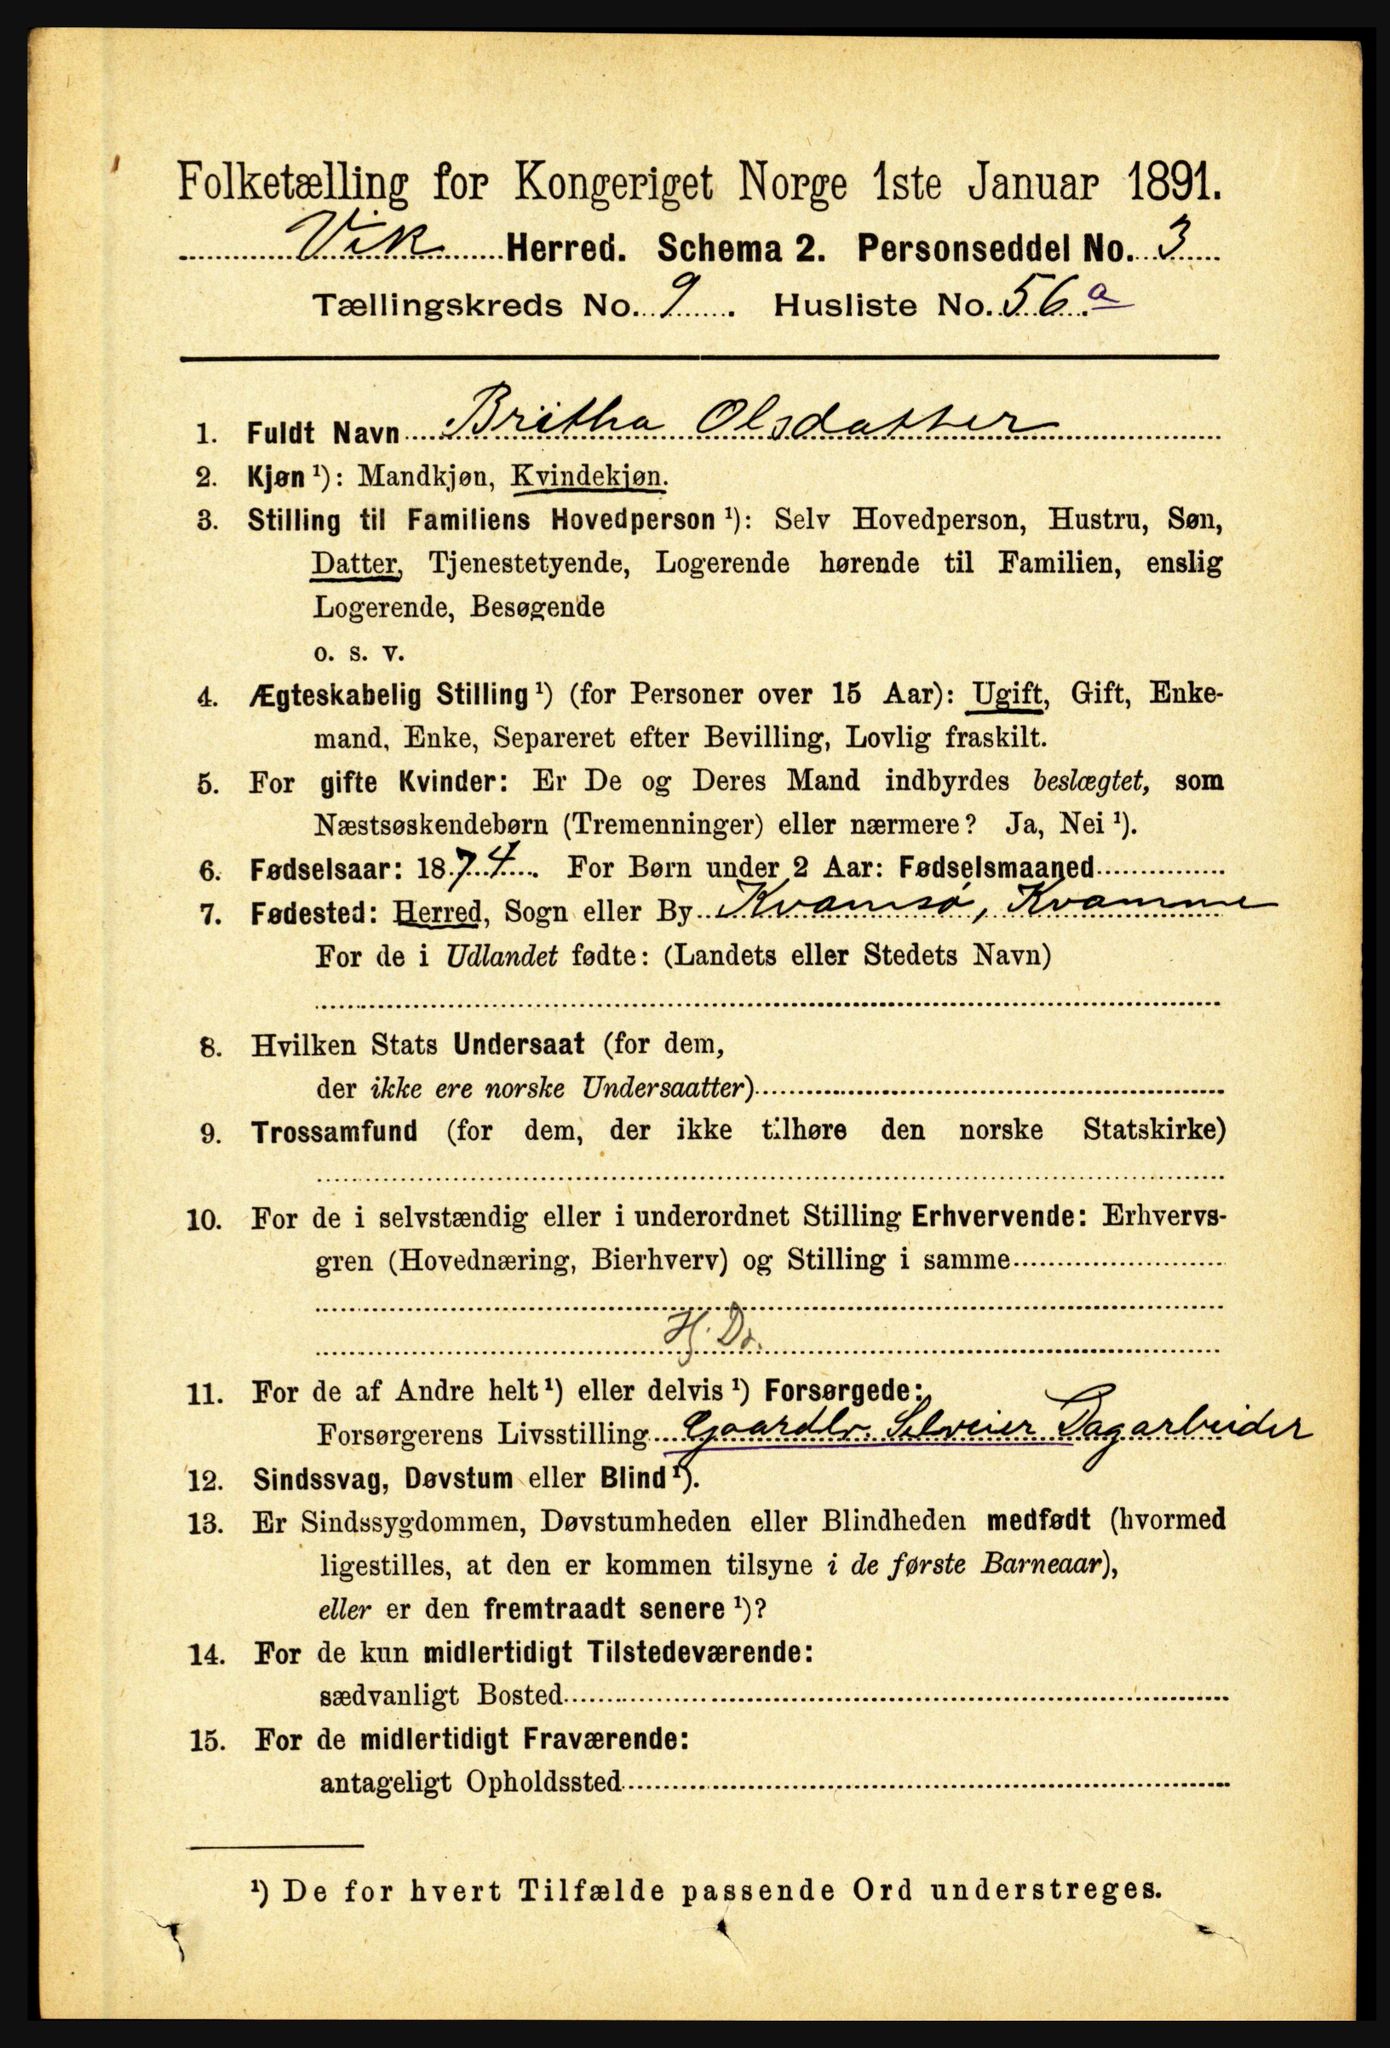 Folketælling for Kongeriget Norge 1ste Januar 1891.
Vik Herred. Schema 2. Personseddel No. 3
Tællingskreds No. 9. Husliste No. 56 a
1. Fuldt Navn Britha Olsdatter
2. Kjøn ¹): Mandkjøn, Kvindekjøn.
3. Stilling til Familiens Hovedperson ¹): Selv Hovedperson, Hustru, Søn,
Datter, Tjenestetyende, Logerende hørende til Familien, enslig
Logerende, Besøgende
o. s. v.
4. Ægteskabelig Stilling ¹) (for Personer over 15 Aar): Ugift, Gift, Enke-
mand, Enke, Separeret efter Bevilling, Lovlig fraskilt.
5. For gifte Kvinder: Er De og Deres Mand indbyrdes beslægtet, som
Næstsøskendebørn (Tremenninger) eller nærmere? Ja, Nei ¹).
6. Fødselsaar: 1874. For Børn under 2 Aar: Fødselsmaaned
7. Fødested: Herred, Sogn eller By Kvamsø, Kvamme
For de i Udlandet fødte: (Landets eller Stedets Navn)
8. Hvilken Stats Undersaat (for dem,
der ikke ere norske Undersaatter)
9. Trossamfund (for dem, der ikke tilhøre den norske Statskirke)
10. For de i selvstændig eller i underordnet Stilling Erhvervende: Erhvervs-
gren (Hovednæring, Bierhverv) og Stilling i samme
Hj. Dr.
11. For de af Andre helt ¹) eller delvis ¹) Forsørgede:
Forsørgerens Livsstilling Gaardbr. Selveier Dagarbeider
12. Sindssvag, Døvstum eller Blind ¹).
13. Er Sindssygdommen, Døvstumheden eller Blindheden medfødt (hvormed
ligestilles, at den er kommen tilsyne i de første Barneaar),
eller er den fremtraadt senere ¹)?
14. For de kun midlertidigt Tilstedeværende:
sædvanligt Bosted
15. For de midlertidigt Fraværende:
antageligt Opholdssted
¹) De for hvert Tilfælde passende Ord understreges.